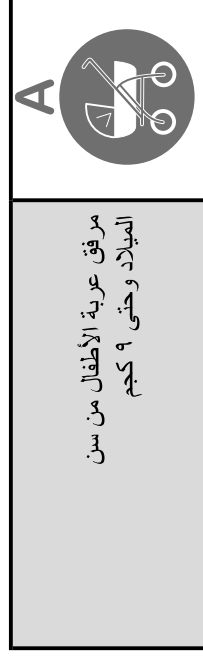 A
مرفق عربة الأطفال من سن
الميلاد وحتى ٩ كجم